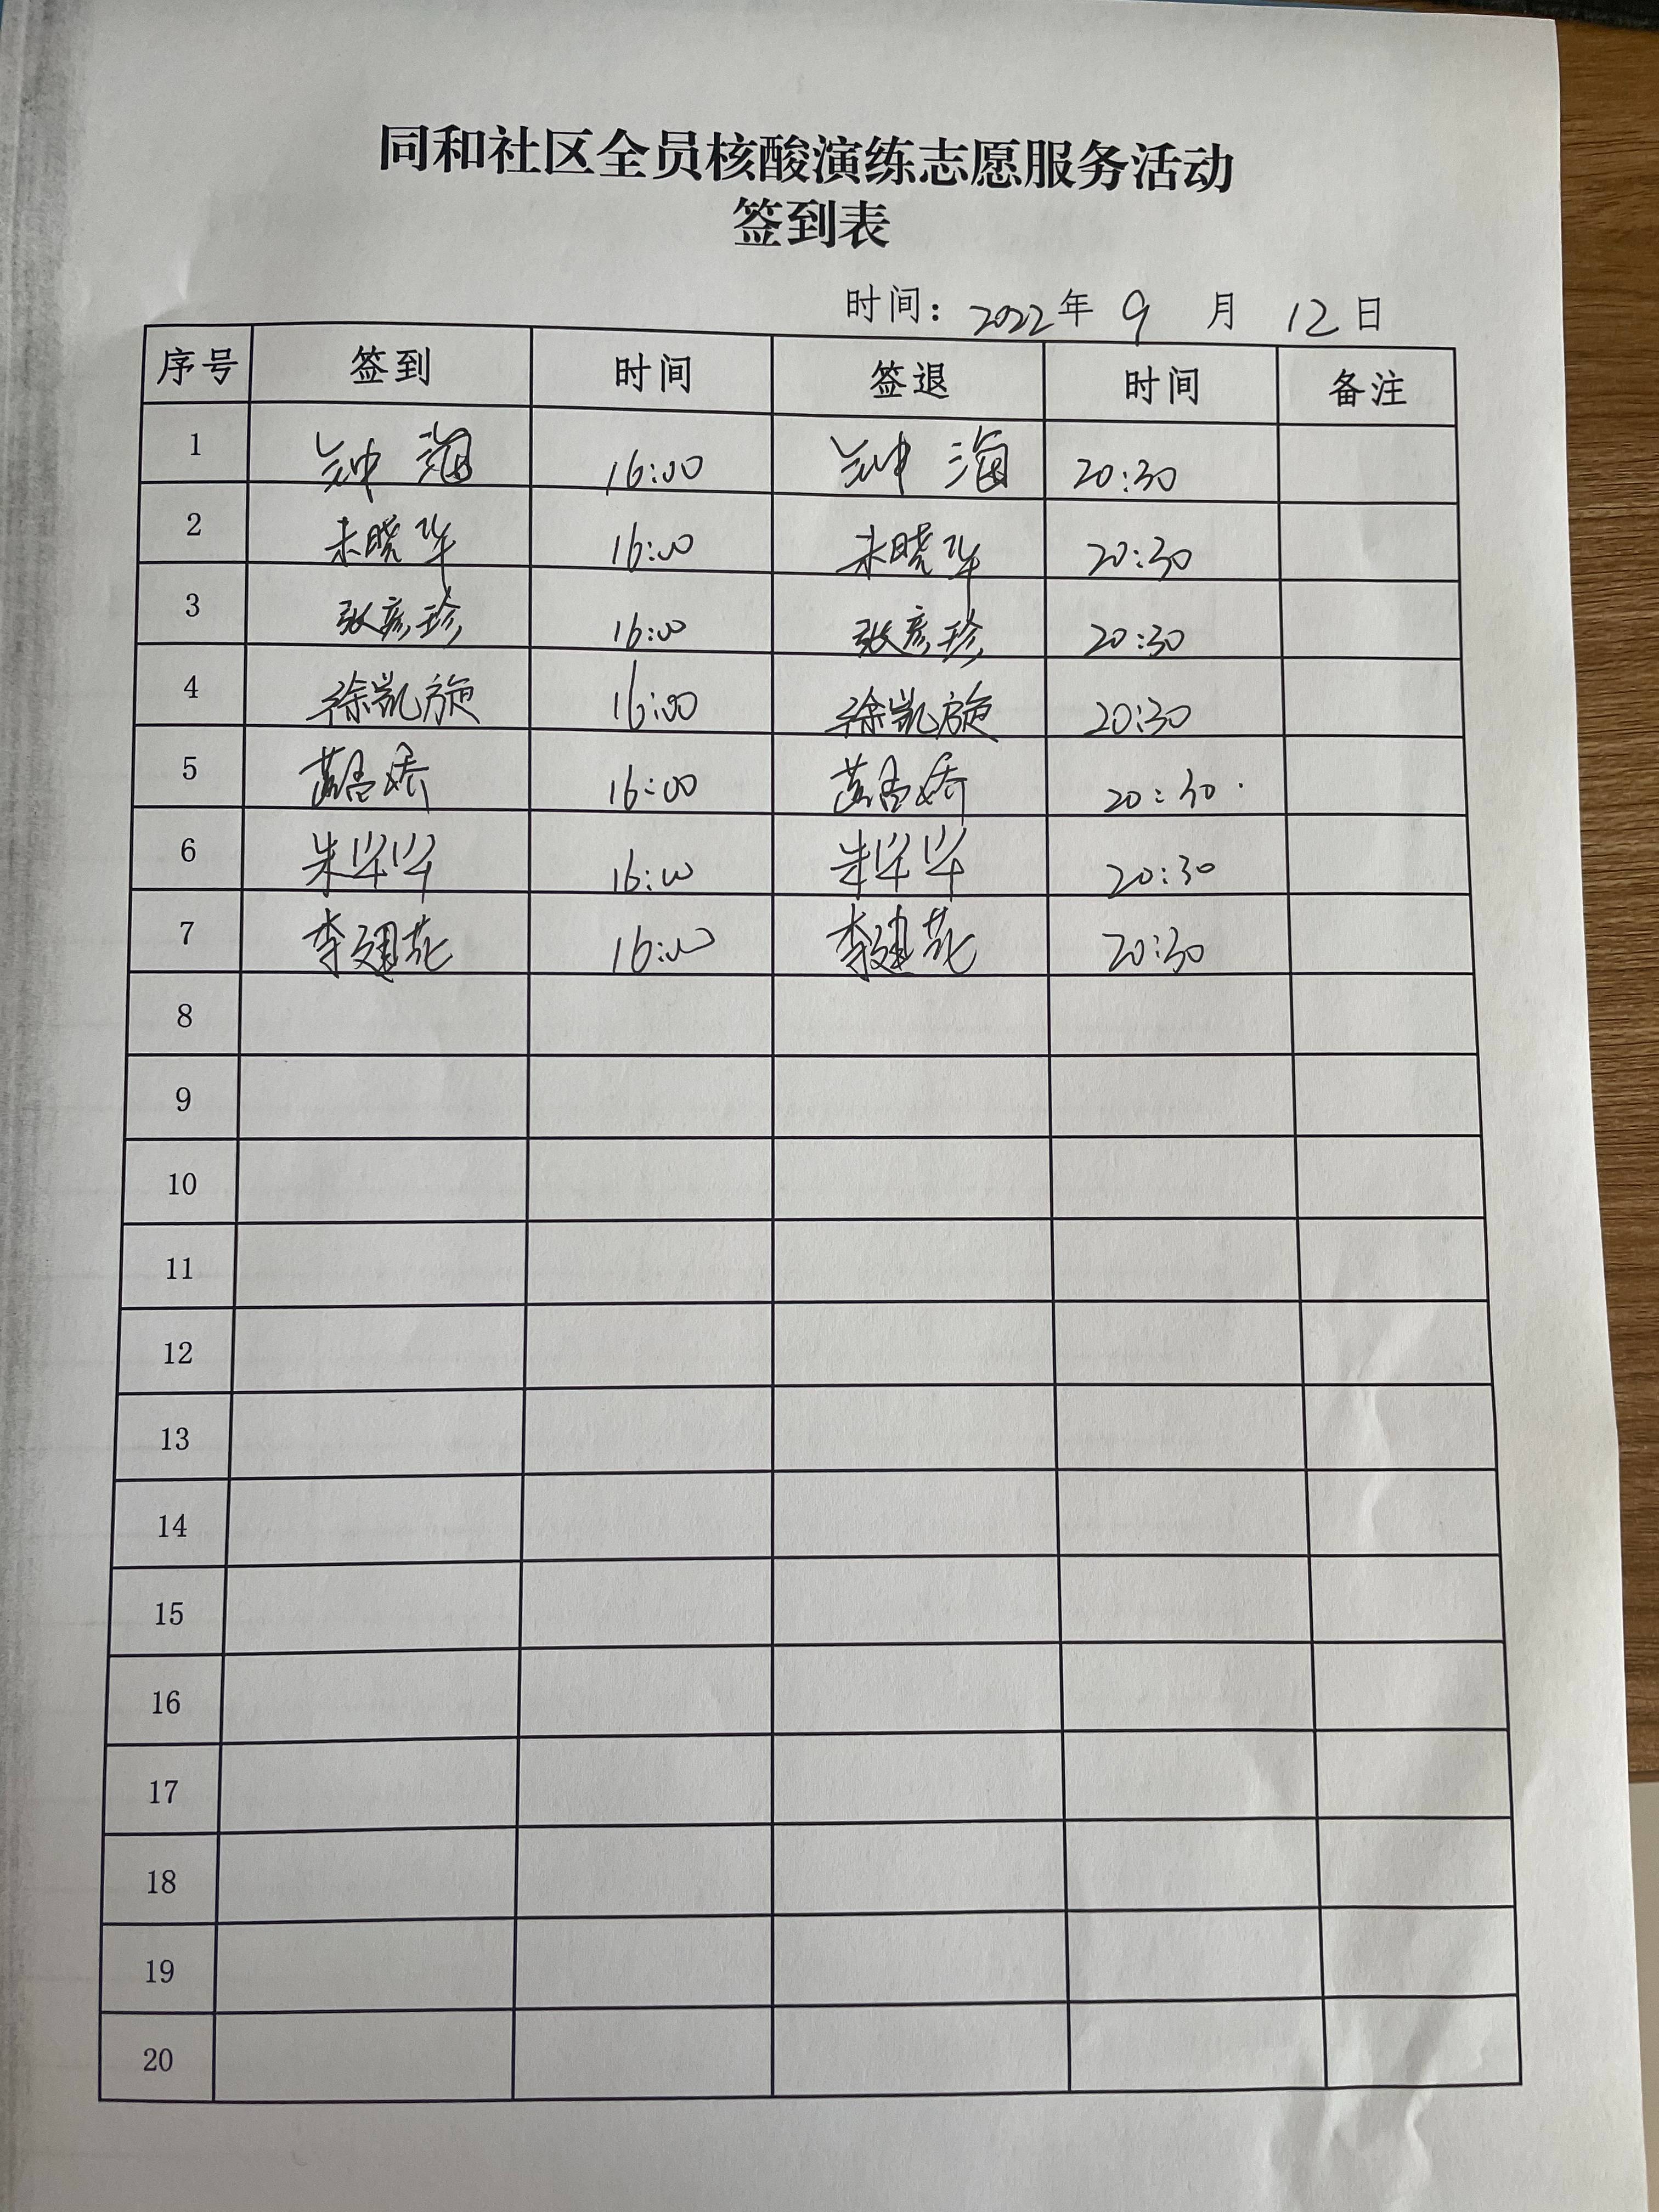 同和社区全员核酸演练志愿服务活动
签到表
时间：2022年 9 月 12 日
序号 签到 时间 签退 时间 备注
1 钟海 16:00 钟海 20:30
2 朱晓华 16:00 朱晓华 20:30
3 张彦珍 16:00 张彦珍 20:30
4 徐凯旋 16:00 徐凯旋 20:30
5 16:00 20:30
6 朱华华 16:00 朱华华 20:30
7 李建花 16:00 李建花 20:30
8
9
10
11
12
13
14
15
16
17
18
19
20